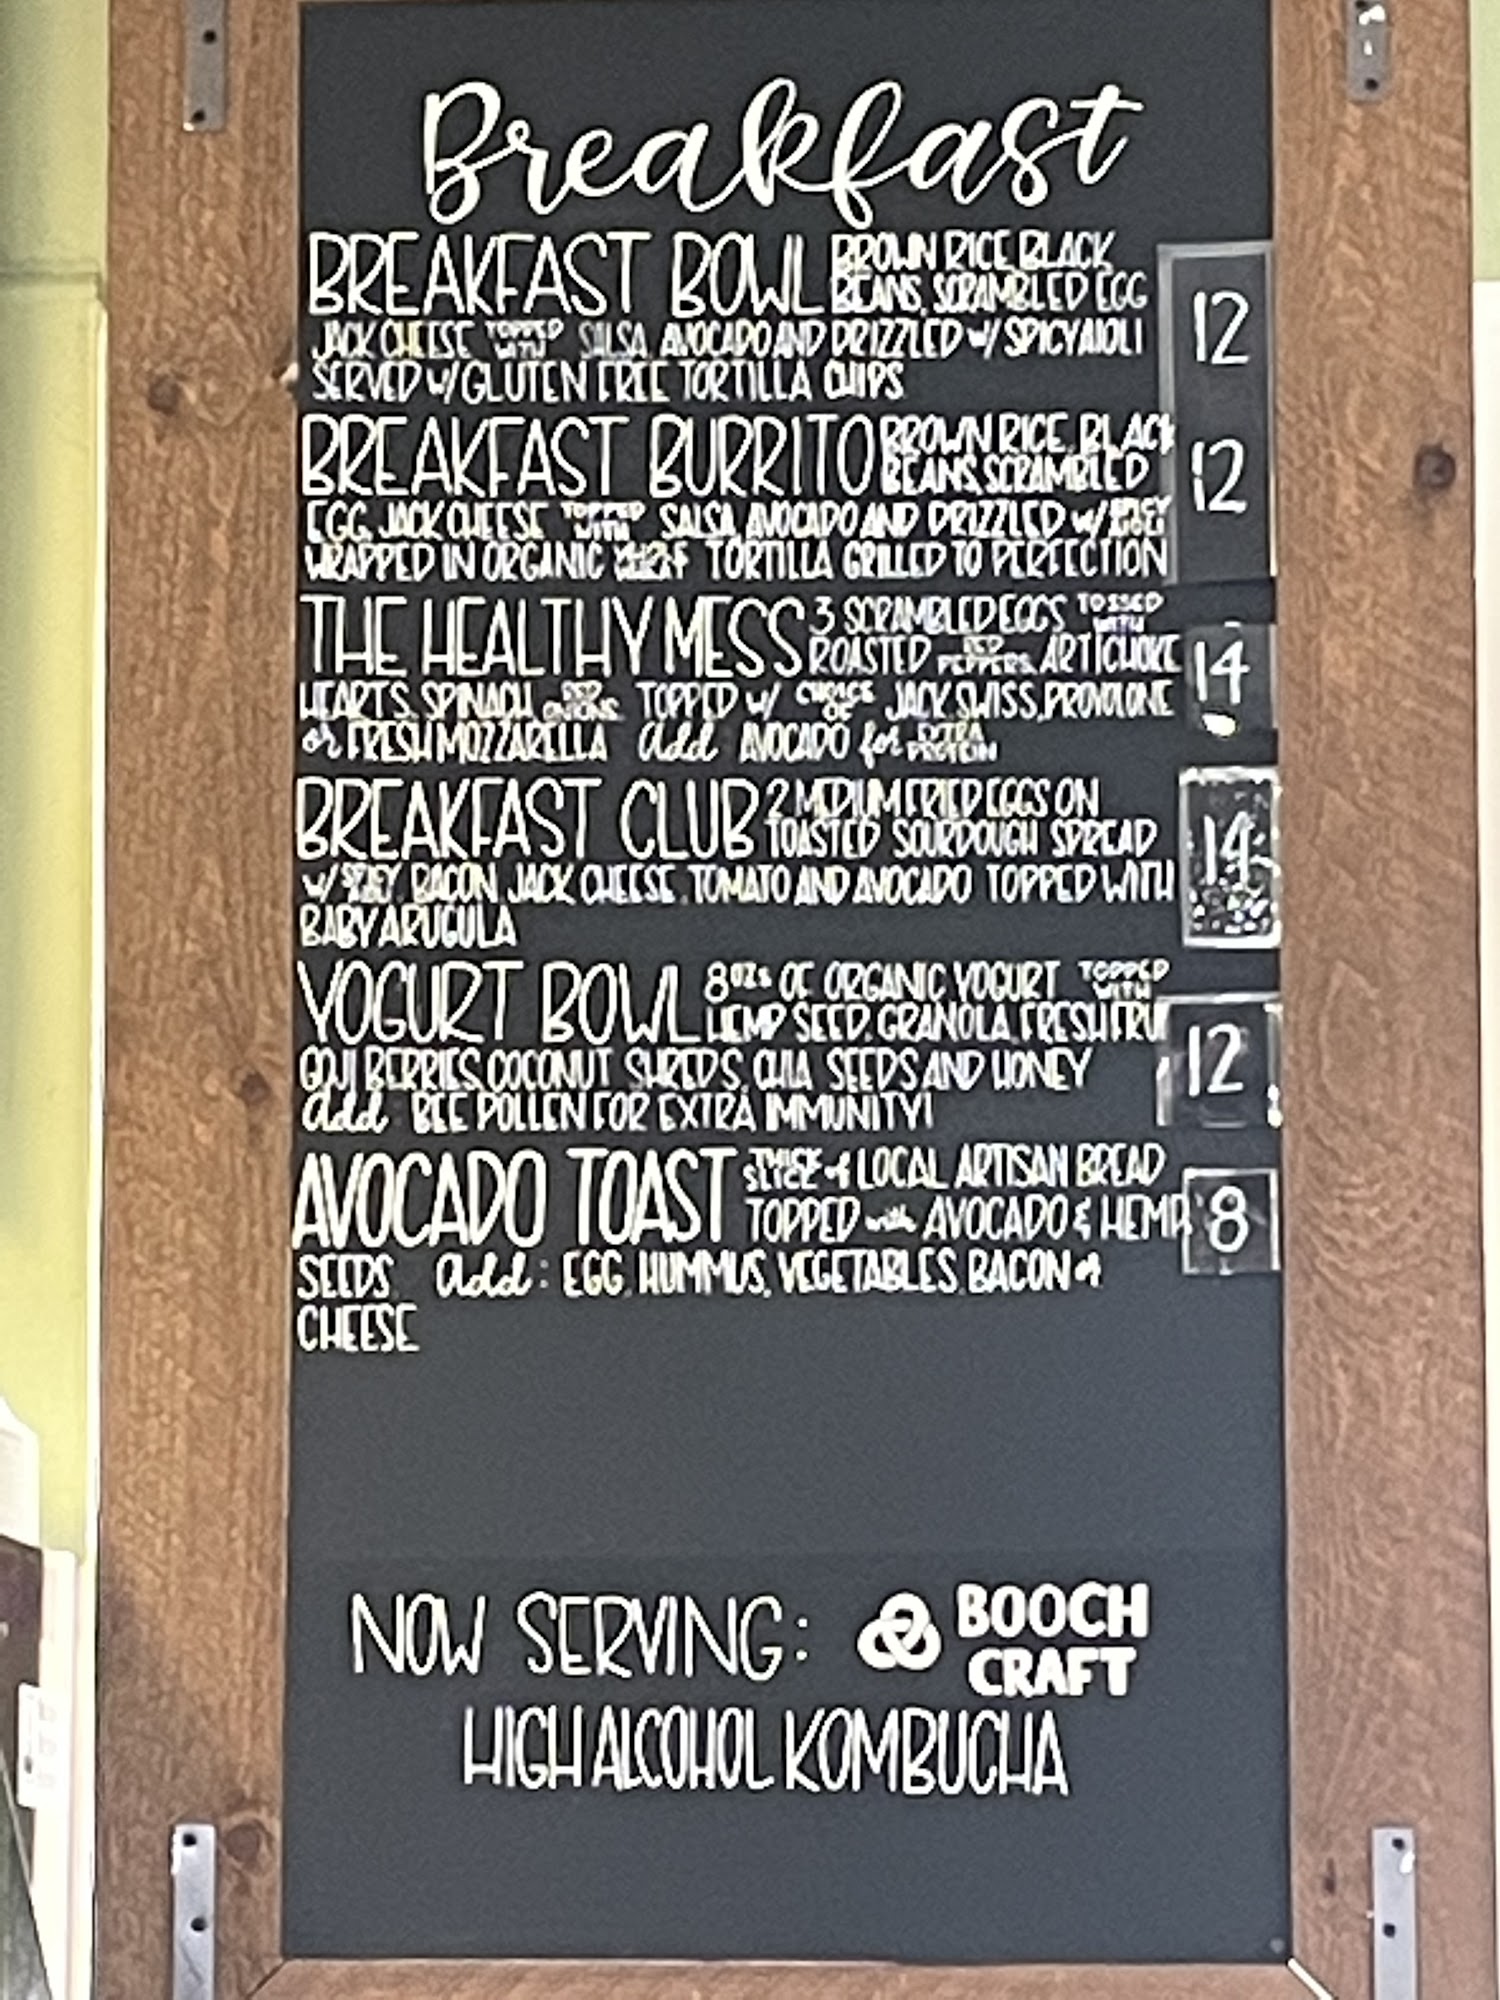 Breakfast
BREAKFAST BOWL BROWN RICE, BLACK
BEANS, SCRAMBLED EGG
12
JACK CHEESE TOPPED WITH SALSA, AVOCADO AND DRIZZLED w/ SPICY AIOLI
SERVED w/ GLUTEN FREE TORTILLA CHIPS
BREAKFAST BURRITO BROWN RICE, BLACK
BEANS, SCRAMBLED
12
EGG, JACK CHEESE TOPPED WITH SALSA, AVOCADO AND DRIZZLED w/ SPICY AIOLI
WRAPPED IN ORGANIC TORTILLA GRILLED TO PERFECTION
THE HEALTHY MESS 3 SCRAMBLED EGGS TOSSED WITH
ROASTED RED PEPPERS, ARTICHOKE
14
HEARTS, SPINACH, RED ONIONS TOPPED w/ CHOICE OF JACK, SWISS, PROVOLONE
or FRESH MOZZARELLA Add AVOCADO for EXTRA PROTEIN
BREAKFAST CLUB 2 MEDIUM FRIED EGGS ON
TOASTED SOURDOUGH SPREAD
14
w/ BACON, JACK CHEESE, TOMATO AND AVOCADO TOPPED WITH
BABY ARUGULA
YOGURT BOWL 8 OZs OF ORGANIC YOGURT TOPPED WITH
HEMP SEED, GRANOLA, FRESH FRUI
12
GOJI BERRIES, COCONUT SHREDS, CHIA SEEDS AND HONEY
Add BEE POLLEN FOR EXTRA IMMUNITY!
AVOCADO TOAST THICK SLICE of LOCAL ARTISAN BREAD
TOPPED with AVOCADO & HEMP
8
SEEDS Add: EGG, HUMMUS, VEGETABLES, BACON
CHEESE
NOW SERVING: BOOCH
CRAFT
HIGH ALCOHOL KOMBUCHA